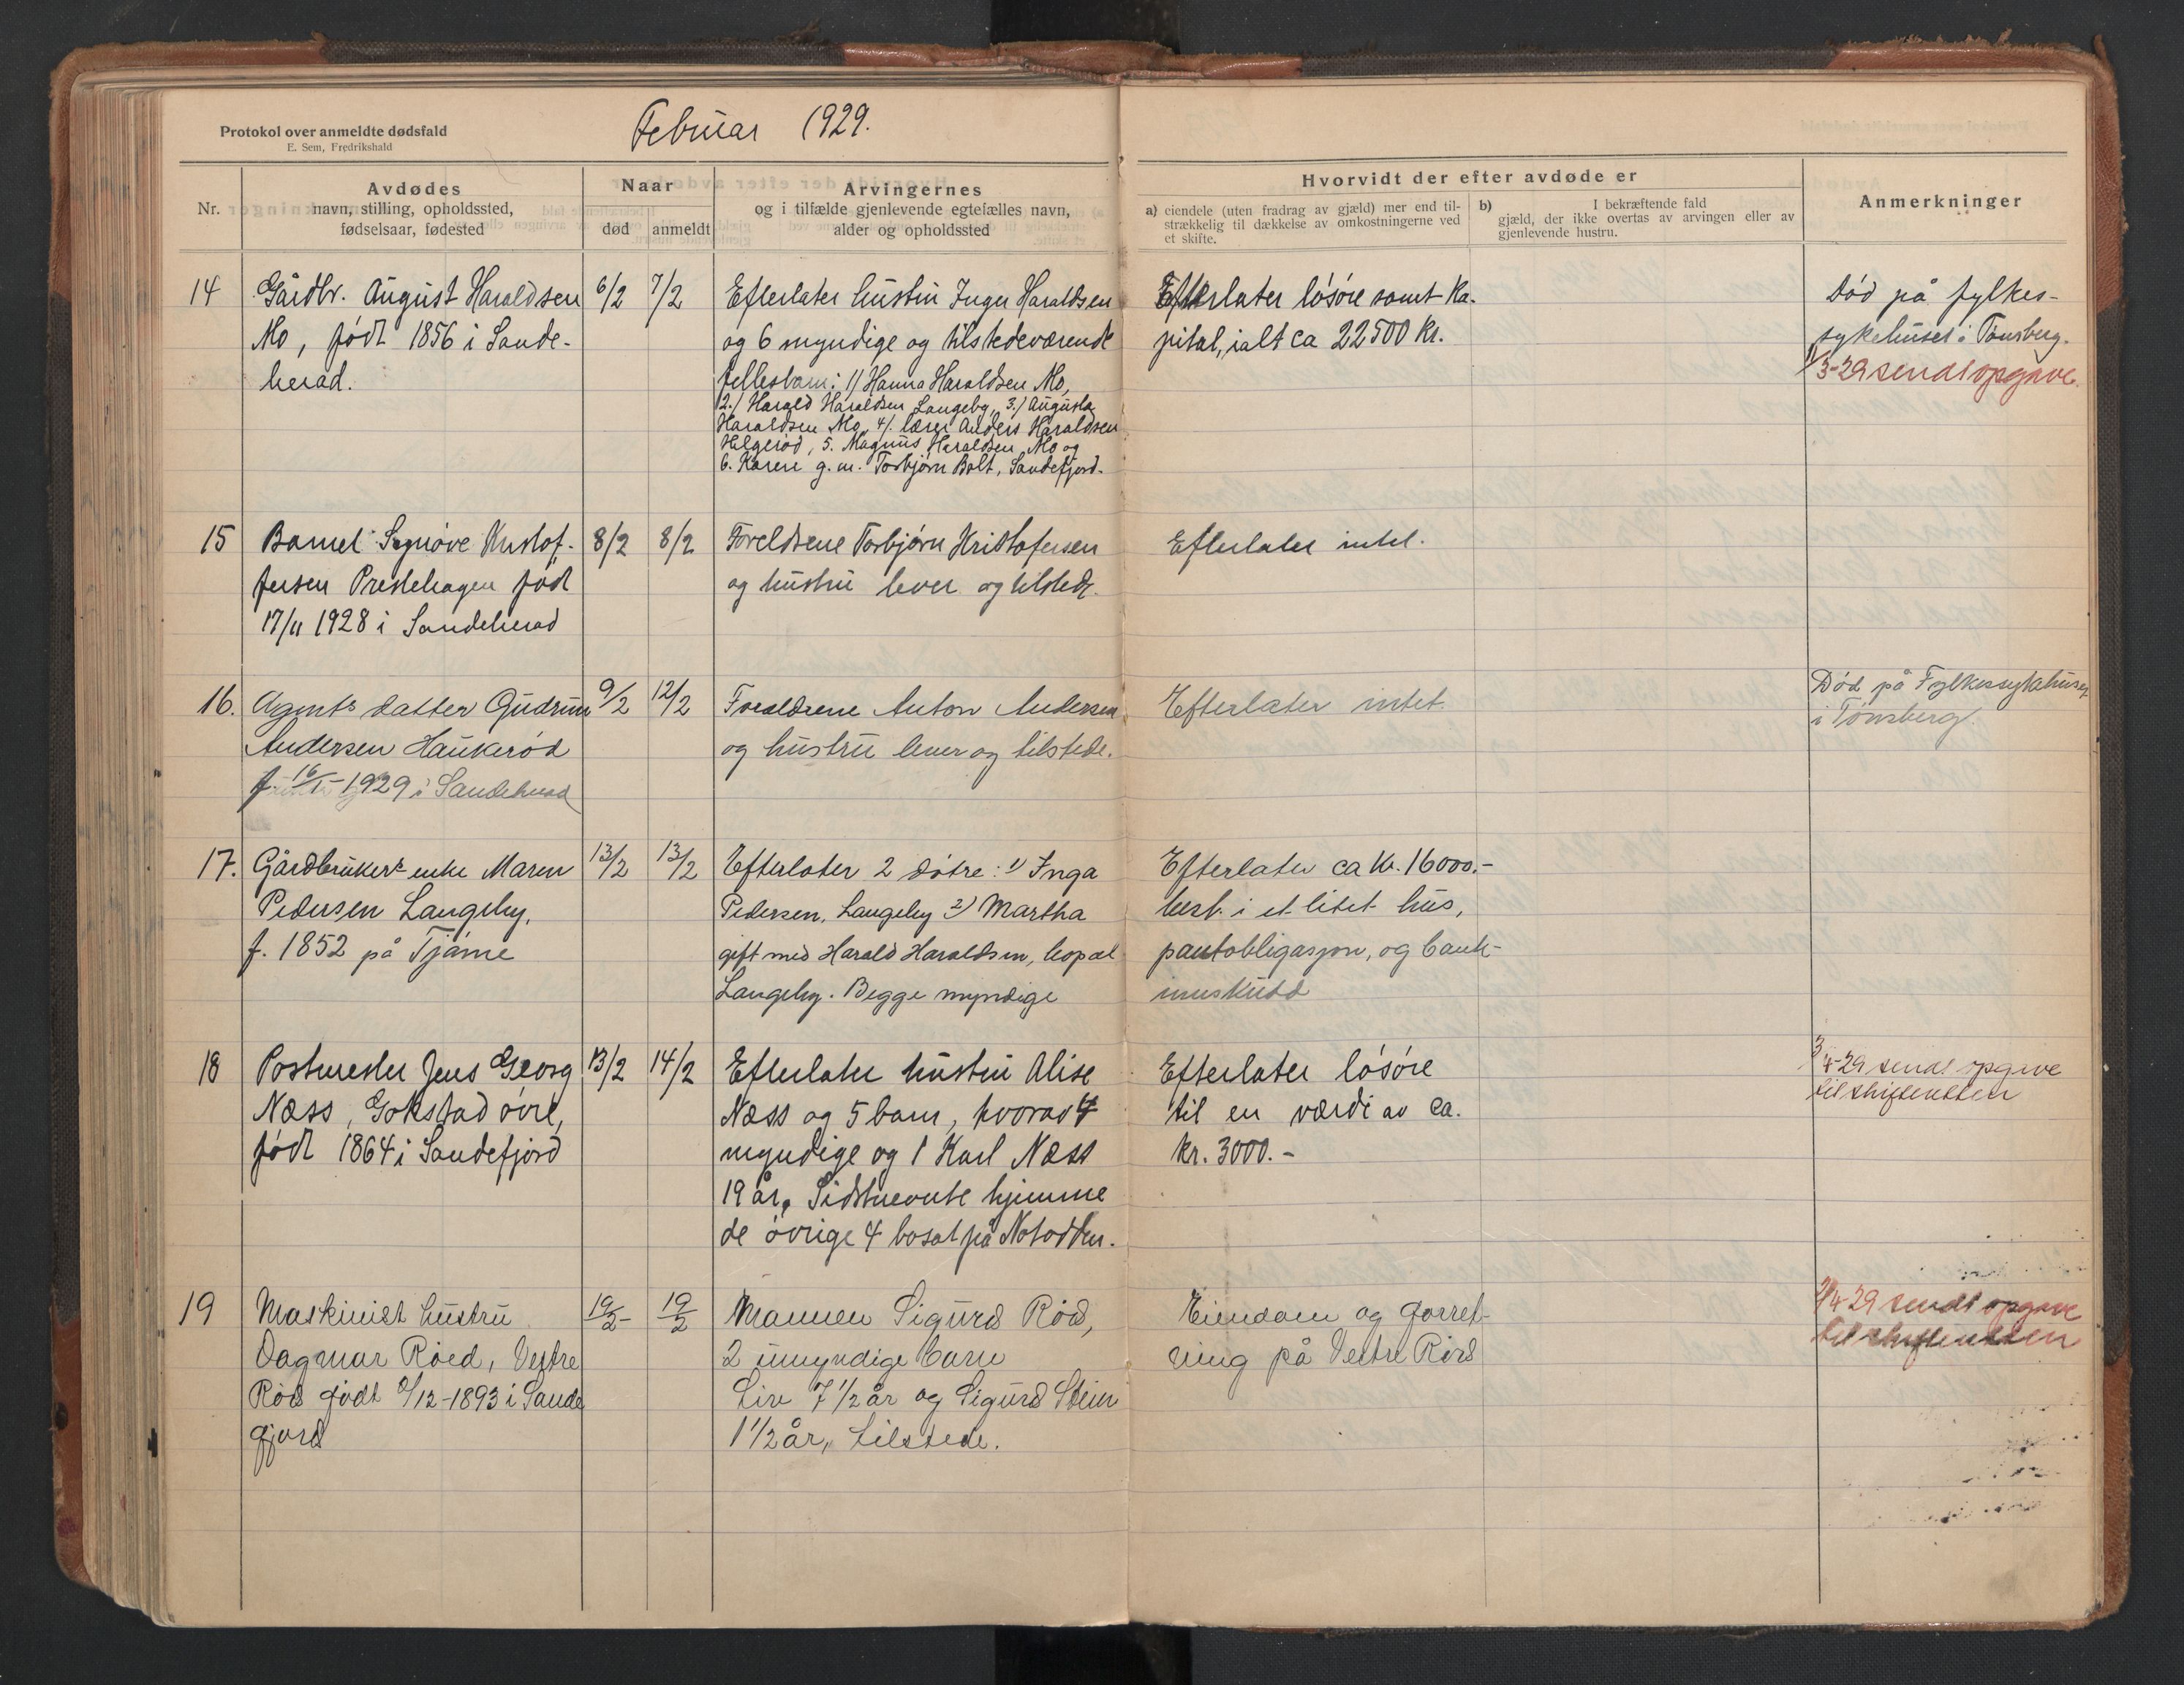 Protokol over anmeldte dødsfald
E. Sem, Fredrikshald
Februar 1929.
Nr.
Avdødes
navn, stilling, opholdssted,
fødselsaar, fødested
Naar
død
anmeldt
Arvingernes
og i tilfælde gjenlevende egtefælles navn,
alder og opholdssted
Hvorvidt der efter avdøde er
a) eiendele (uten fradrag av gjæld) mer end til-
strækkelig til dækkelse av omkostningerne ved
et skifte.
b) I bekræftende fald
gjæld, der ikke overtas av arvingen eller av
gjenlevende hustru.
Anmerkninger
14
Gårdbr. August Haraldsen
Mo, født 1856 i Sande-
herad.
6/2
7/2
Efterlater hustru Inger Haraldsen
og 6 myndige og tilstedeværende
fellesbarn: 1/ Hanna Haraldsen Mo,
2./ Harald Haraldsen Langeby, 3./ Augusta
Haraldsen Mo, 4/. lærer Anders Haraldsen
Helgerød, 5. Magnus Haraldsen, Mo og
6. Karen g.m. Torbjørn Bolt, Sandefjord.
Efterlater løsøre samt ka-
pital, ialt ca 22500 kr.
Død på fylkes-
sykehuset i Tønsberg.
1/3-29 sendt opgave.
15
Barnet Synøve Kristof-
fersen Prestehagen født
17/11 1928 i Sandeherad
8/2
8/2
Foreldrene Torbjørn Kristofersen
og hustru lever og tilstede.
Efterlater intet.
16.
Agents datter Gudrun
Andersen Haukerød
f. 16/1-1929 i Sandeherad
9/2
12/2
Forældrene Anton Andersen
og hustru lever og tilstede.
Efterlater intet.
Død på Fylkessykehuset
i Tønsberg.
17.
Gårdbrukers enke Maren
Pedersen Langeby,
f. 1852 på Tjøme
13/2
13/2
Efterlater 2 døtre: 1) Inga
Pedersen, Langeby 2) Martha
gift med Harald Haraldsen, bopæl
Langeby. Begge myndige
Efterlater ca kr. 16000.-
best. i et litet hus,
pantobligasjon, og bank-
innskudd
18
Postmester Jens Georg
Næss, Gokstad øvre,
født 1864 i Sandefjord
13/2
14/2
Efterlater hustru Alise
Næss og 5 barn, hvorav 4
myndige og 1 Karl Næss
19 år. Sidstnevnte hjemme
de øvrige 4 bosat på Notodden.
Efterlater løsøre
til en værdi av ca.
kr. 3000.-
3/4-29 sendt opgave
til skifteretten
19
Maskinist hustru
Dagmar Røed, Vestre
Rød født /12-1893 i Sande
fjord
19/2
19/2
Mannen Sigurd Röd,
2 umyndige barn
Liv 7 1/2 år og Sigurd Stein
1 1/2 år, tilstede.
Eiendom og forret-
ning på Vestre Röd
/4-29 sendt opgave
til skifteretten